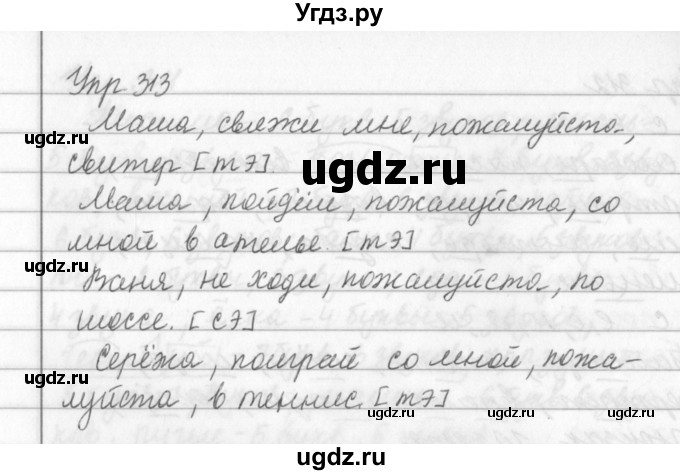 Угдз.ру
Упр 313
Маша, свяжи мне, пожалуйста,
свитер [тэ]
Мама, пойдём, пожалуйста, со
мной в ателье. [тэ]
Ваня, не ходи, пожалуйста, по
шоссе. [сэ]
Серёжа, поиграй со мной, пожа-
луйста, в теннис. [тэ]
ugdz.ru
ugdz.ru
ugdz.ru
ugdz.ru
ugdz.ru
ugdz.ru
ugdz.ru
ugdz.ru
ugdz.ru
ugdz.ru
ugdz.ru